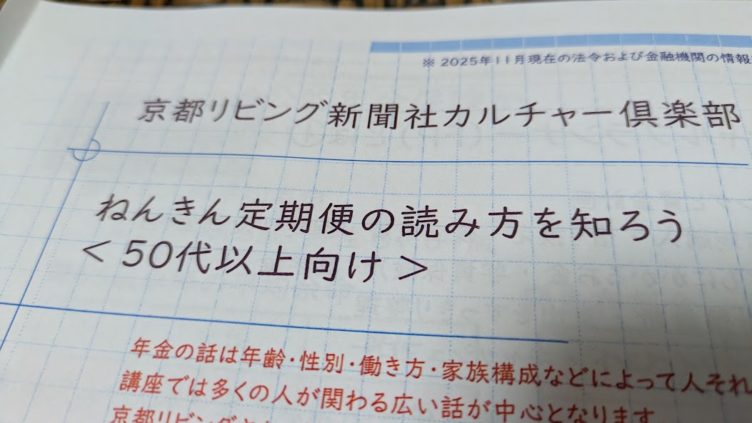 ※ 2025年11月現在の法令および金融機関の情報
京都リビング新聞社カルチャー倶楽部
ねんきん定期便の読み方を知ろう
< 50代以上向け >
年金の話は年齢・性別・働き方・家族構成などによって人それ
講座では多くの人が関わる広い話が中心となります
京都リビング